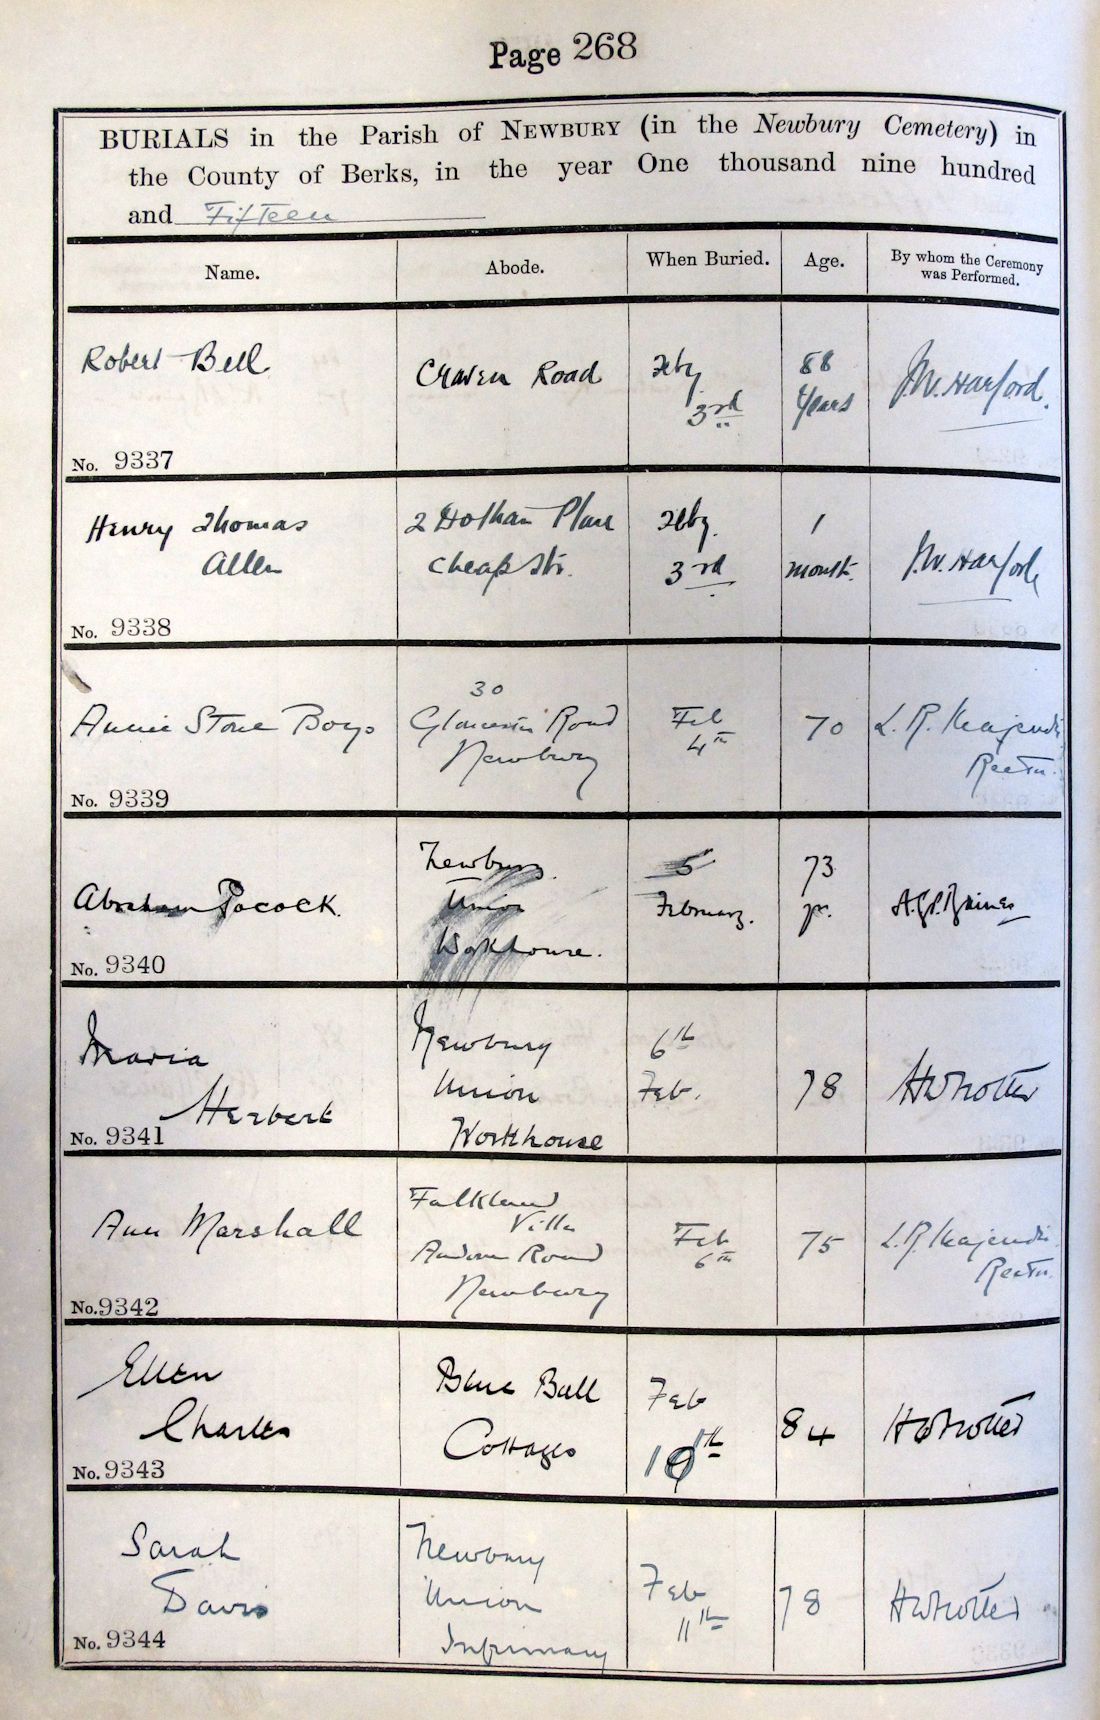 Page 268
BURIALS in the Parish of NEWBURY (in the Newbury Cemetery) in
the County of Berks, in the year One thousand nine hundred
and Fifteen
Name. Abode. When Buried. Age. By whom the Ceremony
was Performed.
Robert Bell
Craven Road
Feby
3rd
88
Years
J.W. Harford.
No. 9337
Henry Thomas
Allen
2 Hotham Place
Cheap Str.
Feby.
3rd
1
month.
J.W. Harford
No. 9338
Annie Stone Boys
30
Gloucester Road
Newbury
Feb
4th
70
L. R. Majendie
Rector.
No. 9339
Abraham Pocock.
Newbury
Union
Workhouse.
5
February.
73
yr.
No. 9340
Maria
Herbert
Newbury
Union
Workhouse
6th
Feb.
78
HWTrotter
No. 9341
Ann Marshall
Falkland
Villa
Andover Road
Newbury
Feb
6th
75
L. R. Majendie
Rector.
No. 9342
Ellen
Charles
Blue Ball
Cottages
Feb
10th
84
HWTrotter
No. 9343
Sarah
Davis
Newbury
Union
Infirmary
Feb
11th
78
HWTrotter
No. 9344